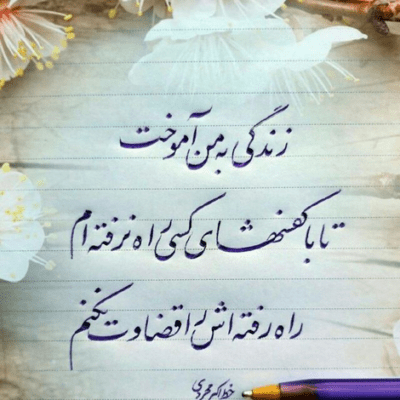 زندگی به من آموخت
تا با کفشهای کسی راه نرفته ام
راه رفتهاش را قضاوت نکنم
خط اکبر